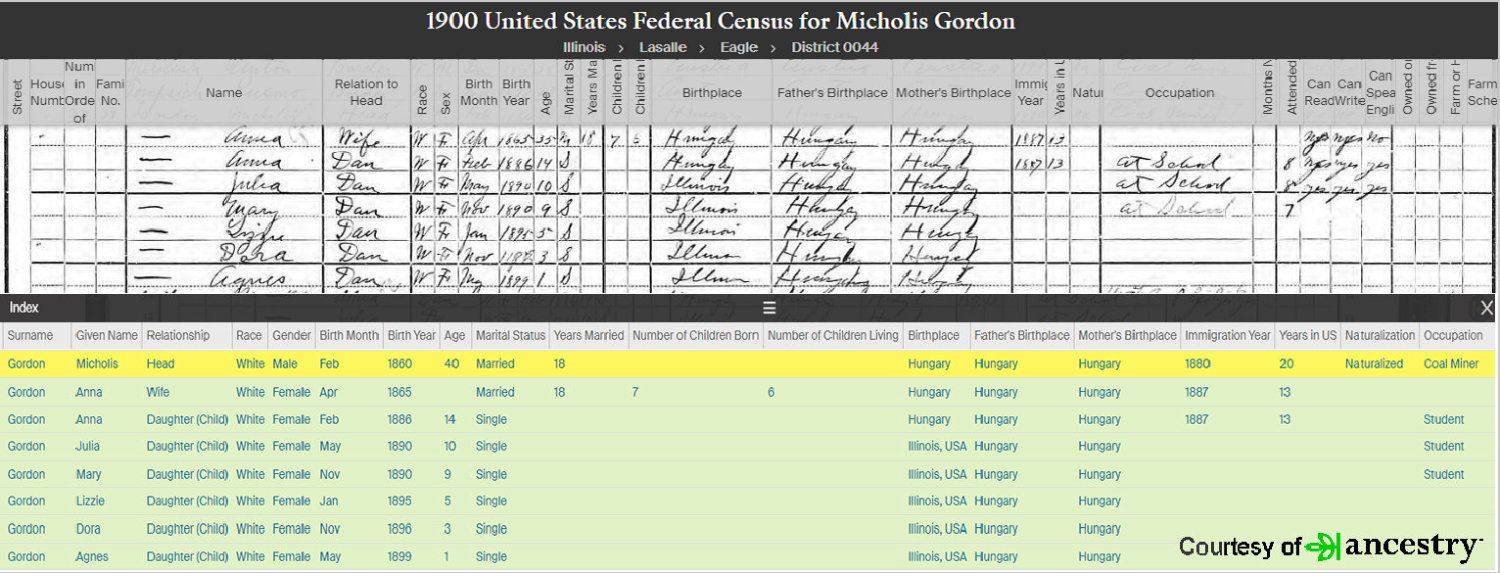 1900 United States Federal Census for Micholis Gordon
Illinois > Lasalle > Eagle > District 0044
Street House Numb Num in Orde of Fami No. Name Relation to Head Race Sex Birth Month Birth Year Age Marital St Years Ma Children Children Birthplace Father's Birthplace Mother's Birthplace Immig Year Years in U Natur Occupation Months N Attended Can Read Can Write Can Spea Engli Owned or Owned fr Farm or H Farm Sche
— Anna Wife W F Apr 1865 35 M 18 7 6 Hungary Hungary Hungary 1887 13 yes yes no
— Anna Dau W F Feb 1886 14 S Hungary Hungary Hungary 1887 13 at School 8 yes yes yes
— Julia Dau W F May 1890 10 S Illinois Hungary Hungary at School 8 yes yes yes
— Mary Dau W F Nov 1890 9 S Illinois Hungary Hungary at School 7
— Lizzie Dau W F Jan 1895 5 S Illinois Hungary Hungary
— Dora Dau W F Nov 3 S Illinois Hungary Hungary
— Agnes Dau W F May 1899 1 S Illinois Hungary Hungary
Index X
Surname Given Name Relationship Race Gender Birth Month Birth Year Age Marital Status Years Married Number of Children Born Number of Children Living Birthplace Father's Birthplace Mother's Birthplace Immigration Year Years in US Naturalization Occupation
Gordon Micholis Head White Male Feb 1860 40 Married 18 Hungary Hungary Hungary 1880 20 Naturalized Coal Miner
Gordon Anna Wife White Female Apr 1865 Married 18 7 6 Hungary Hungary Hungary 1887 13
Gordon Anna Daughter (Child) White Female Feb 1886 14 Single Hungary Hungary Hungary 1887 13 Student
Gordon Julia Daughter (Child) White Female May 1890 10 Single Illinois, USA Hungary Hungary Student
Gordon Mary Daughter (Child) White Female Nov 1890 9 Single Illinois, USA Hungary Hungary Student
Gordon Lizzie Daughter (Child) White Female Jan 1895 5 Single Illinois, USA Hungary Hungary
Gordon Dora Daughter (Child) White Female Nov 1896 3 Single Illinois, USA Hungary Hungary
Gordon Agnes Daughter (Child) White Female May 1899 1 Single Illinois, USA Hungary Hungary
Courtesy of ancestry